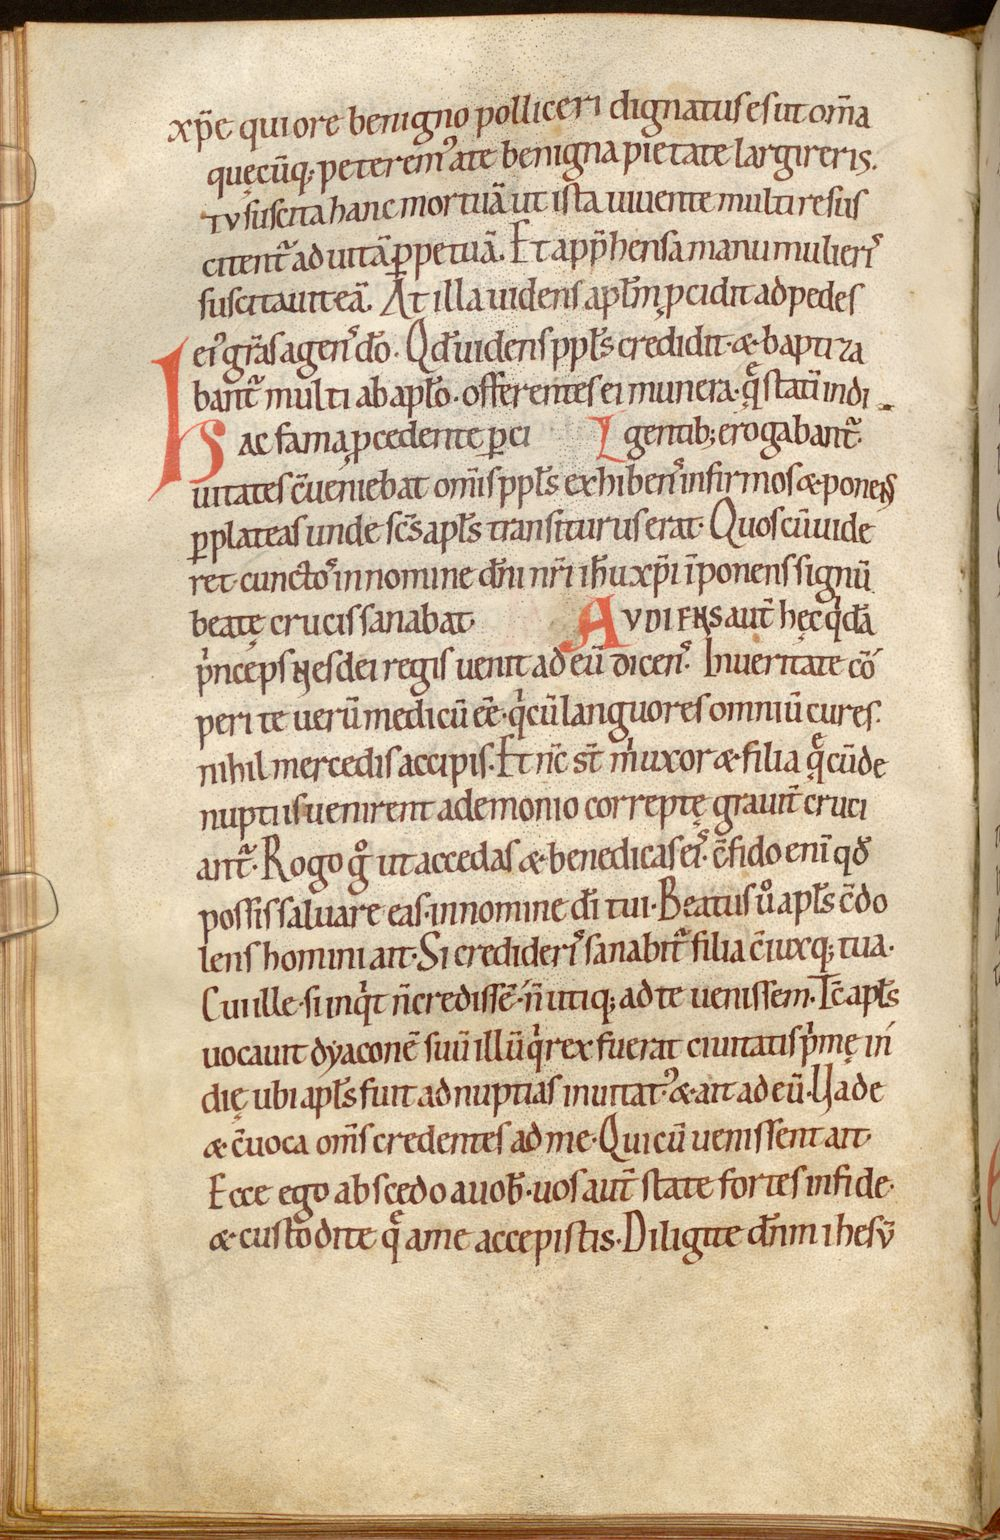 xp̄e qui ore benigno polliceri dignatus es ut om̄a
quęcūq; peterem᾽ a te benigna pietate largireris.
tu suscita hanc mortuā ut ista uiuente multi resus
citent᷑ ad uitā ꝑpetuā. Et app̄hensa manu mulier᾽
suscitauit eā. At illa uidens apl̄m ꝓcidit ad pedes
ei᾽ gr̄as agen᾽ dō. Qd̄ uidens ppl̄s credidit. & baptiza
bant᷑ multi ab apl̄o. offerentes ei munera. quę̄ statū indi
hac fama p̨cedente ꝑ ci gentib; erogabant᷑.
uitates c̄ueniebat om̄is ppl̄s exhiben᾽ infirmos & ponens
ꝑ plateas unde sc̄s apl̄s transiturus erat. Quos cū uide
ret. cuncto᾽ in nomine dn̄i nr̄i ih̄u xp̄i īponens signū
beatę crucis sanabat. AUDIENS aut̄ hęc qͥdā
pͥnceps Nesdei regis uenit ad eū dicen᾽. In ueritate cō
peri te uerū medicū ēē. qͥ cū languores omniū cures.
nihil mercedis accipis. Et nc̄ st̄ mͥ uxor & filia quę̄ cū de
nuptiis uenirent a demonio correptę grauit̄ cruci
ant᷑. Rogo gͦ ut accedas & benedicas ei᾽. c̄fido enī qd̄
possis saluare eas. in nomine dī tui. Beatus uͦ apl̄s c̄do
lens homini ait. Si credider᾽ sanabit᷑ filia c̄iuxq; tua.
Cui ille. si inqͥt n̄ credissē. n̄ utiq; ad te uenissem. Tc̄ apl̄s
uocauit dyaconē suū illū qͥ rex fuerat ciuitatis pͥmę in
dię ubi apl̄s fuit ad nuptias inuitat᾽ & ait ad eū. Uade
& c̄uoca om̄s credentes ad me. Qui cū uenissent ait
Ecce ego abscedo a uob̄. uos aut̄ state fortes in fide.
& custodite quę̄ a me accepistis. Diligite dn̄m ihesū